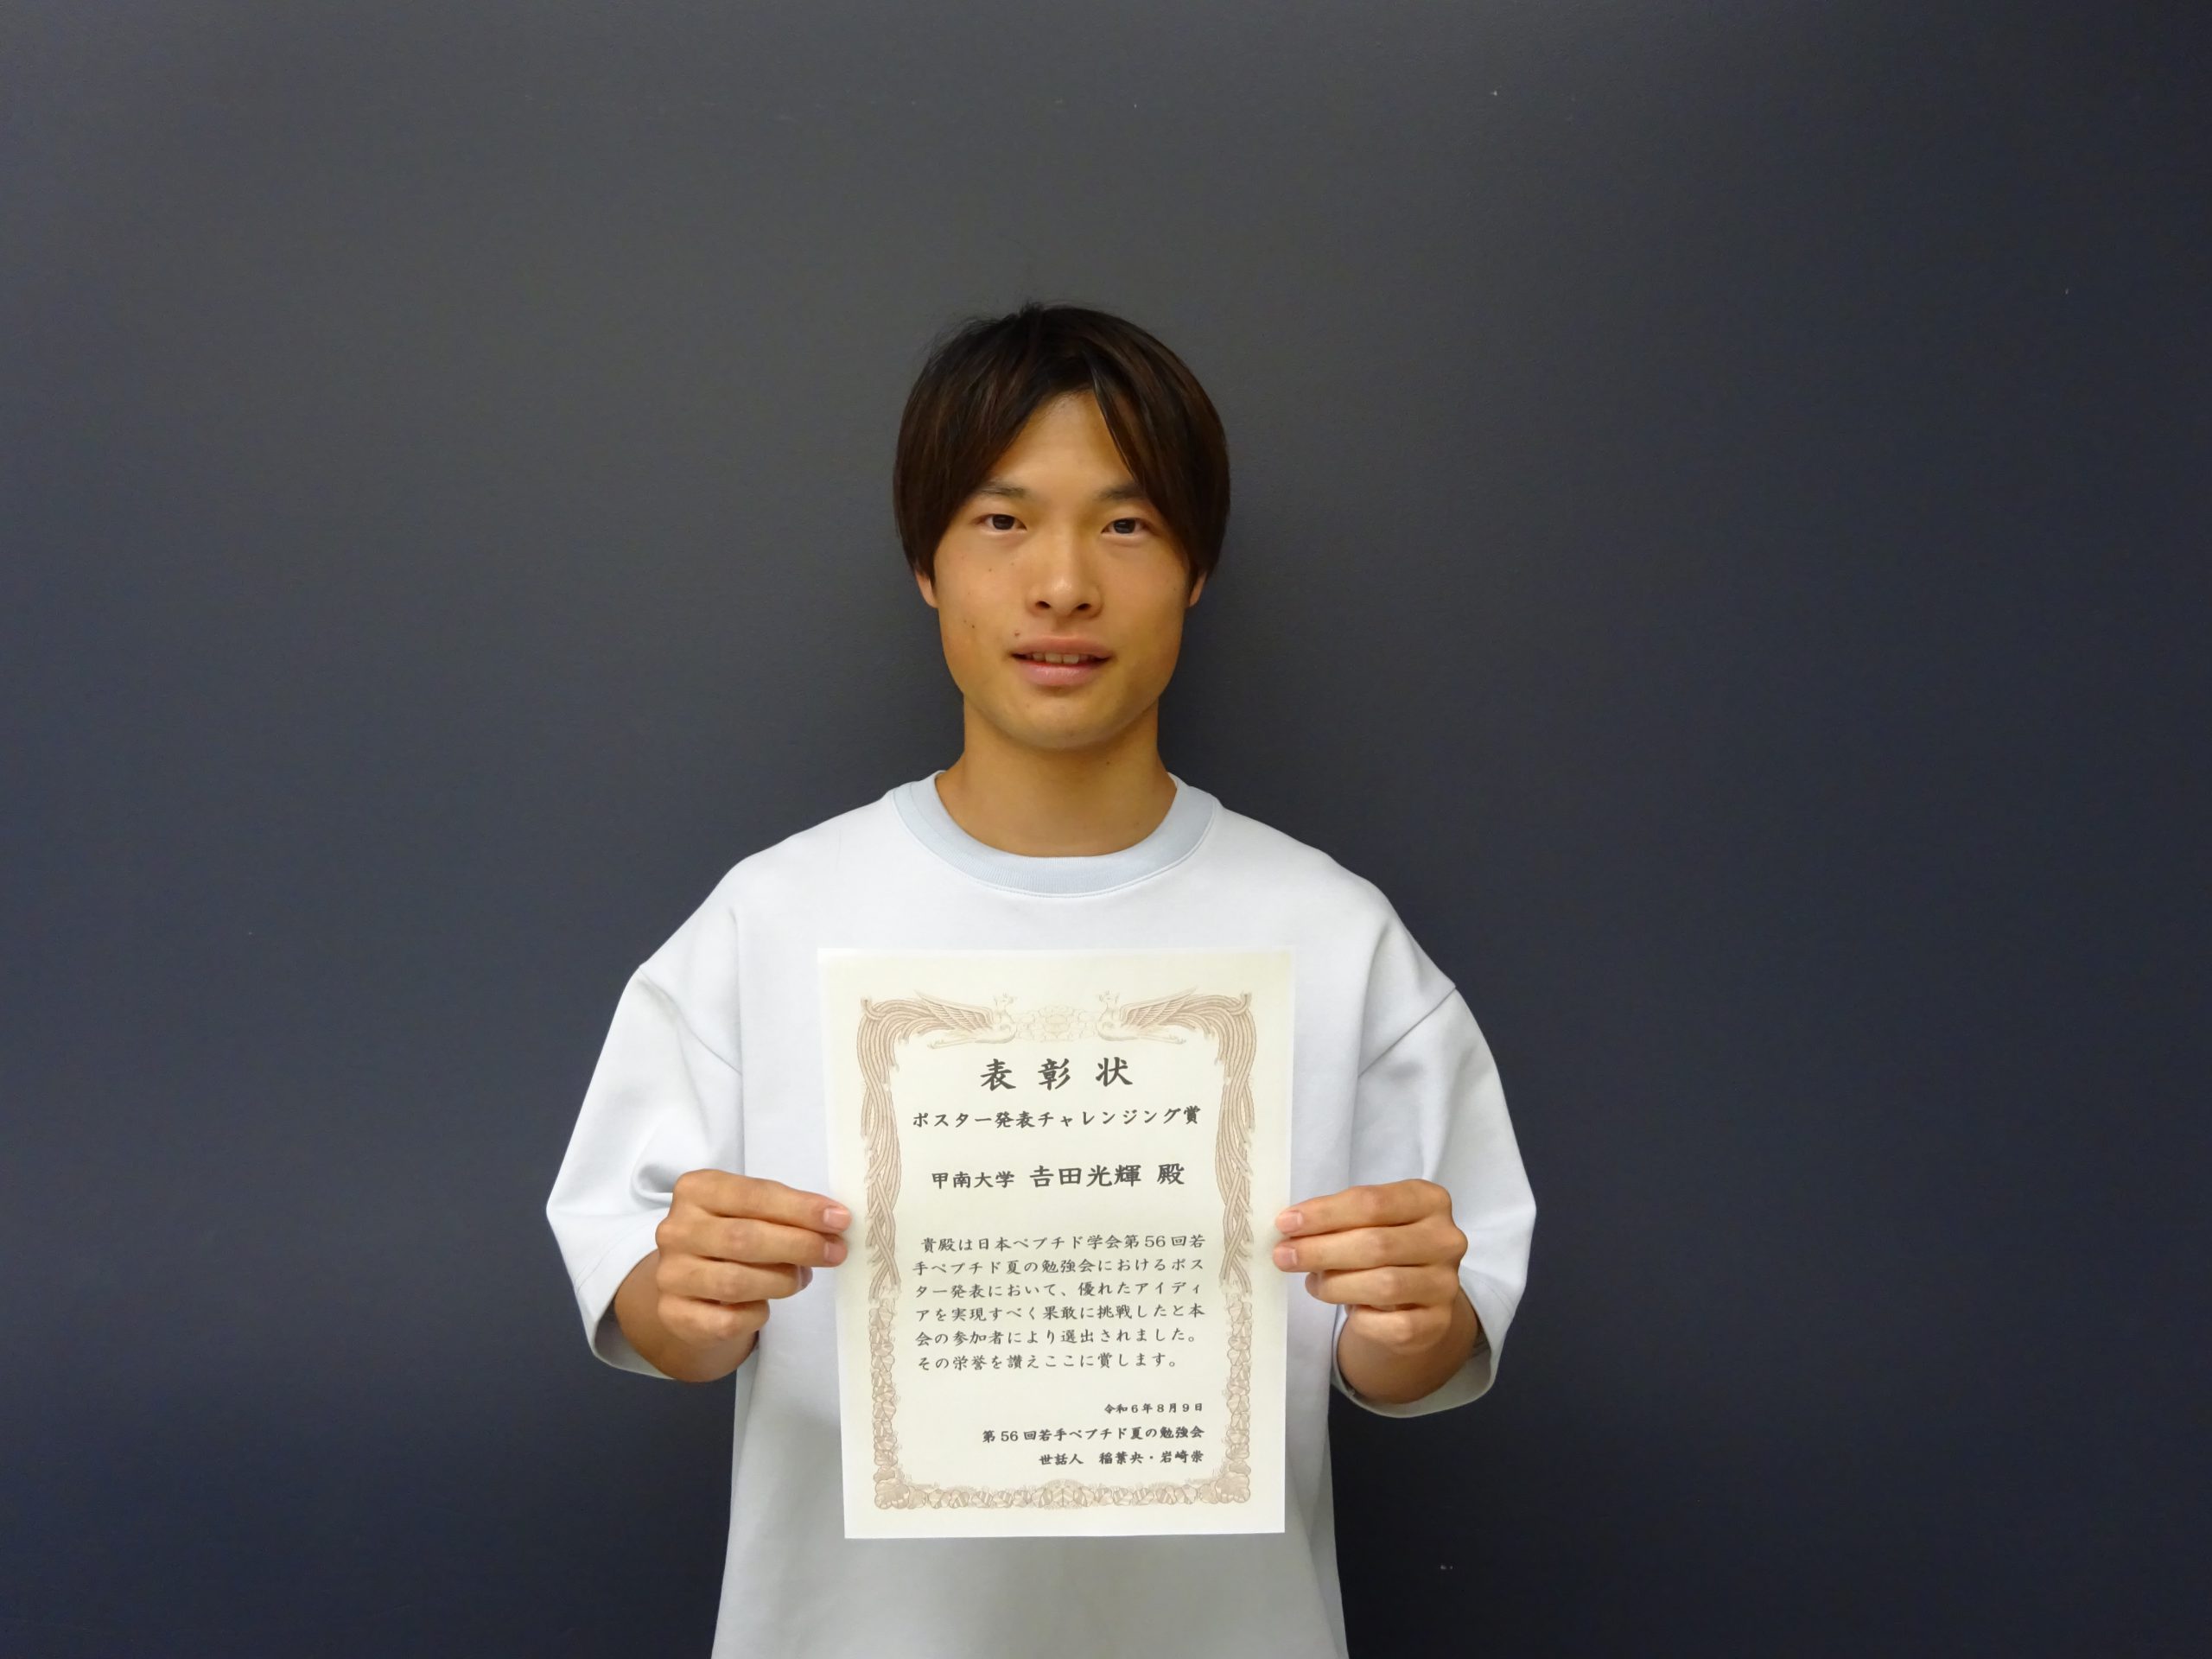 表彰状
ポスター発表チャレンジング賞
甲南大学 𠮷田光輝 殿
貴殿は日本ペプチド学会第56回若
手ペプチド夏の勉強会におけるポス
ター発表において、優れたアイディ
アを実現すべく果敢に挑戦したと本
会の参加者により選出されました。
その栄誉を讃えここに賞します。
令和6年8月9日
第56回若手ペプチド夏の勉強会
世話人 稲葉央・岩崎崇